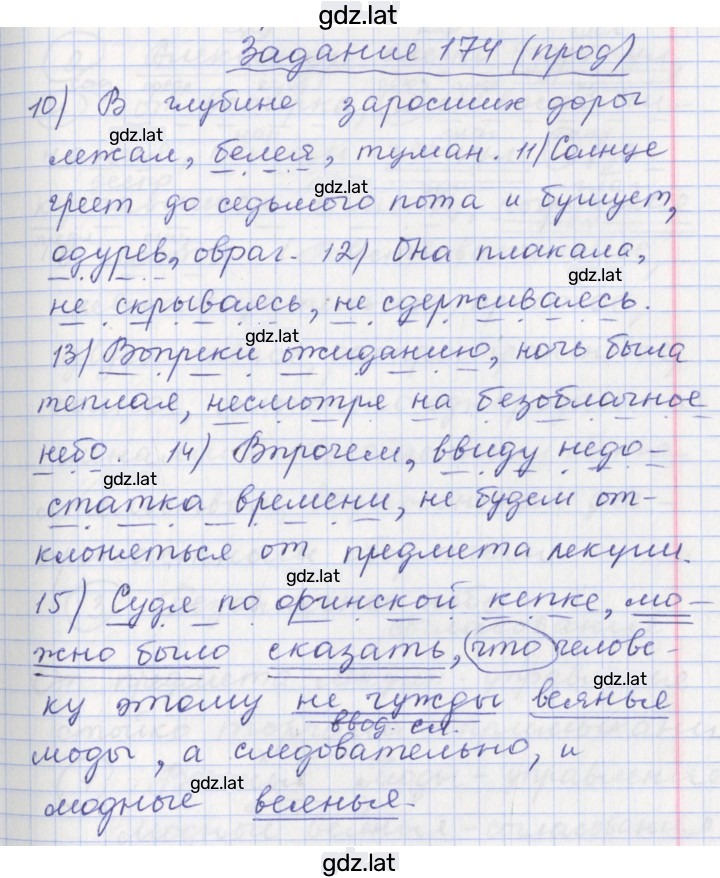 gdz.lat
Задание 174 (прод)
10) В глубине заросших дорог
gdz.lat
лежал, белея, туман. 11) Солнце
gdz.lat
греет до седьмого пота и бушует,
одурев, овраг. 12) Она плакала,
gdz.lat
не скрываясь, не сдерживаясь.
gdz.lat
13) Вопреки ожиданию, ночь была
теплая, несмотря на безоблачное
небо. 14) Впрочем, ввиду недо-
gdz.lat
статка времени, не будем от-
клоняться от предмета лекции.
gdz.lat
15) Судя по оринской кепке, мо-
жно было сказать, что челове-
gdz.lat
ку этому не чужды веянья
ввод. сл.
моды, а следовательно, и
gdz.lat
модные веянья.
gdz.lat